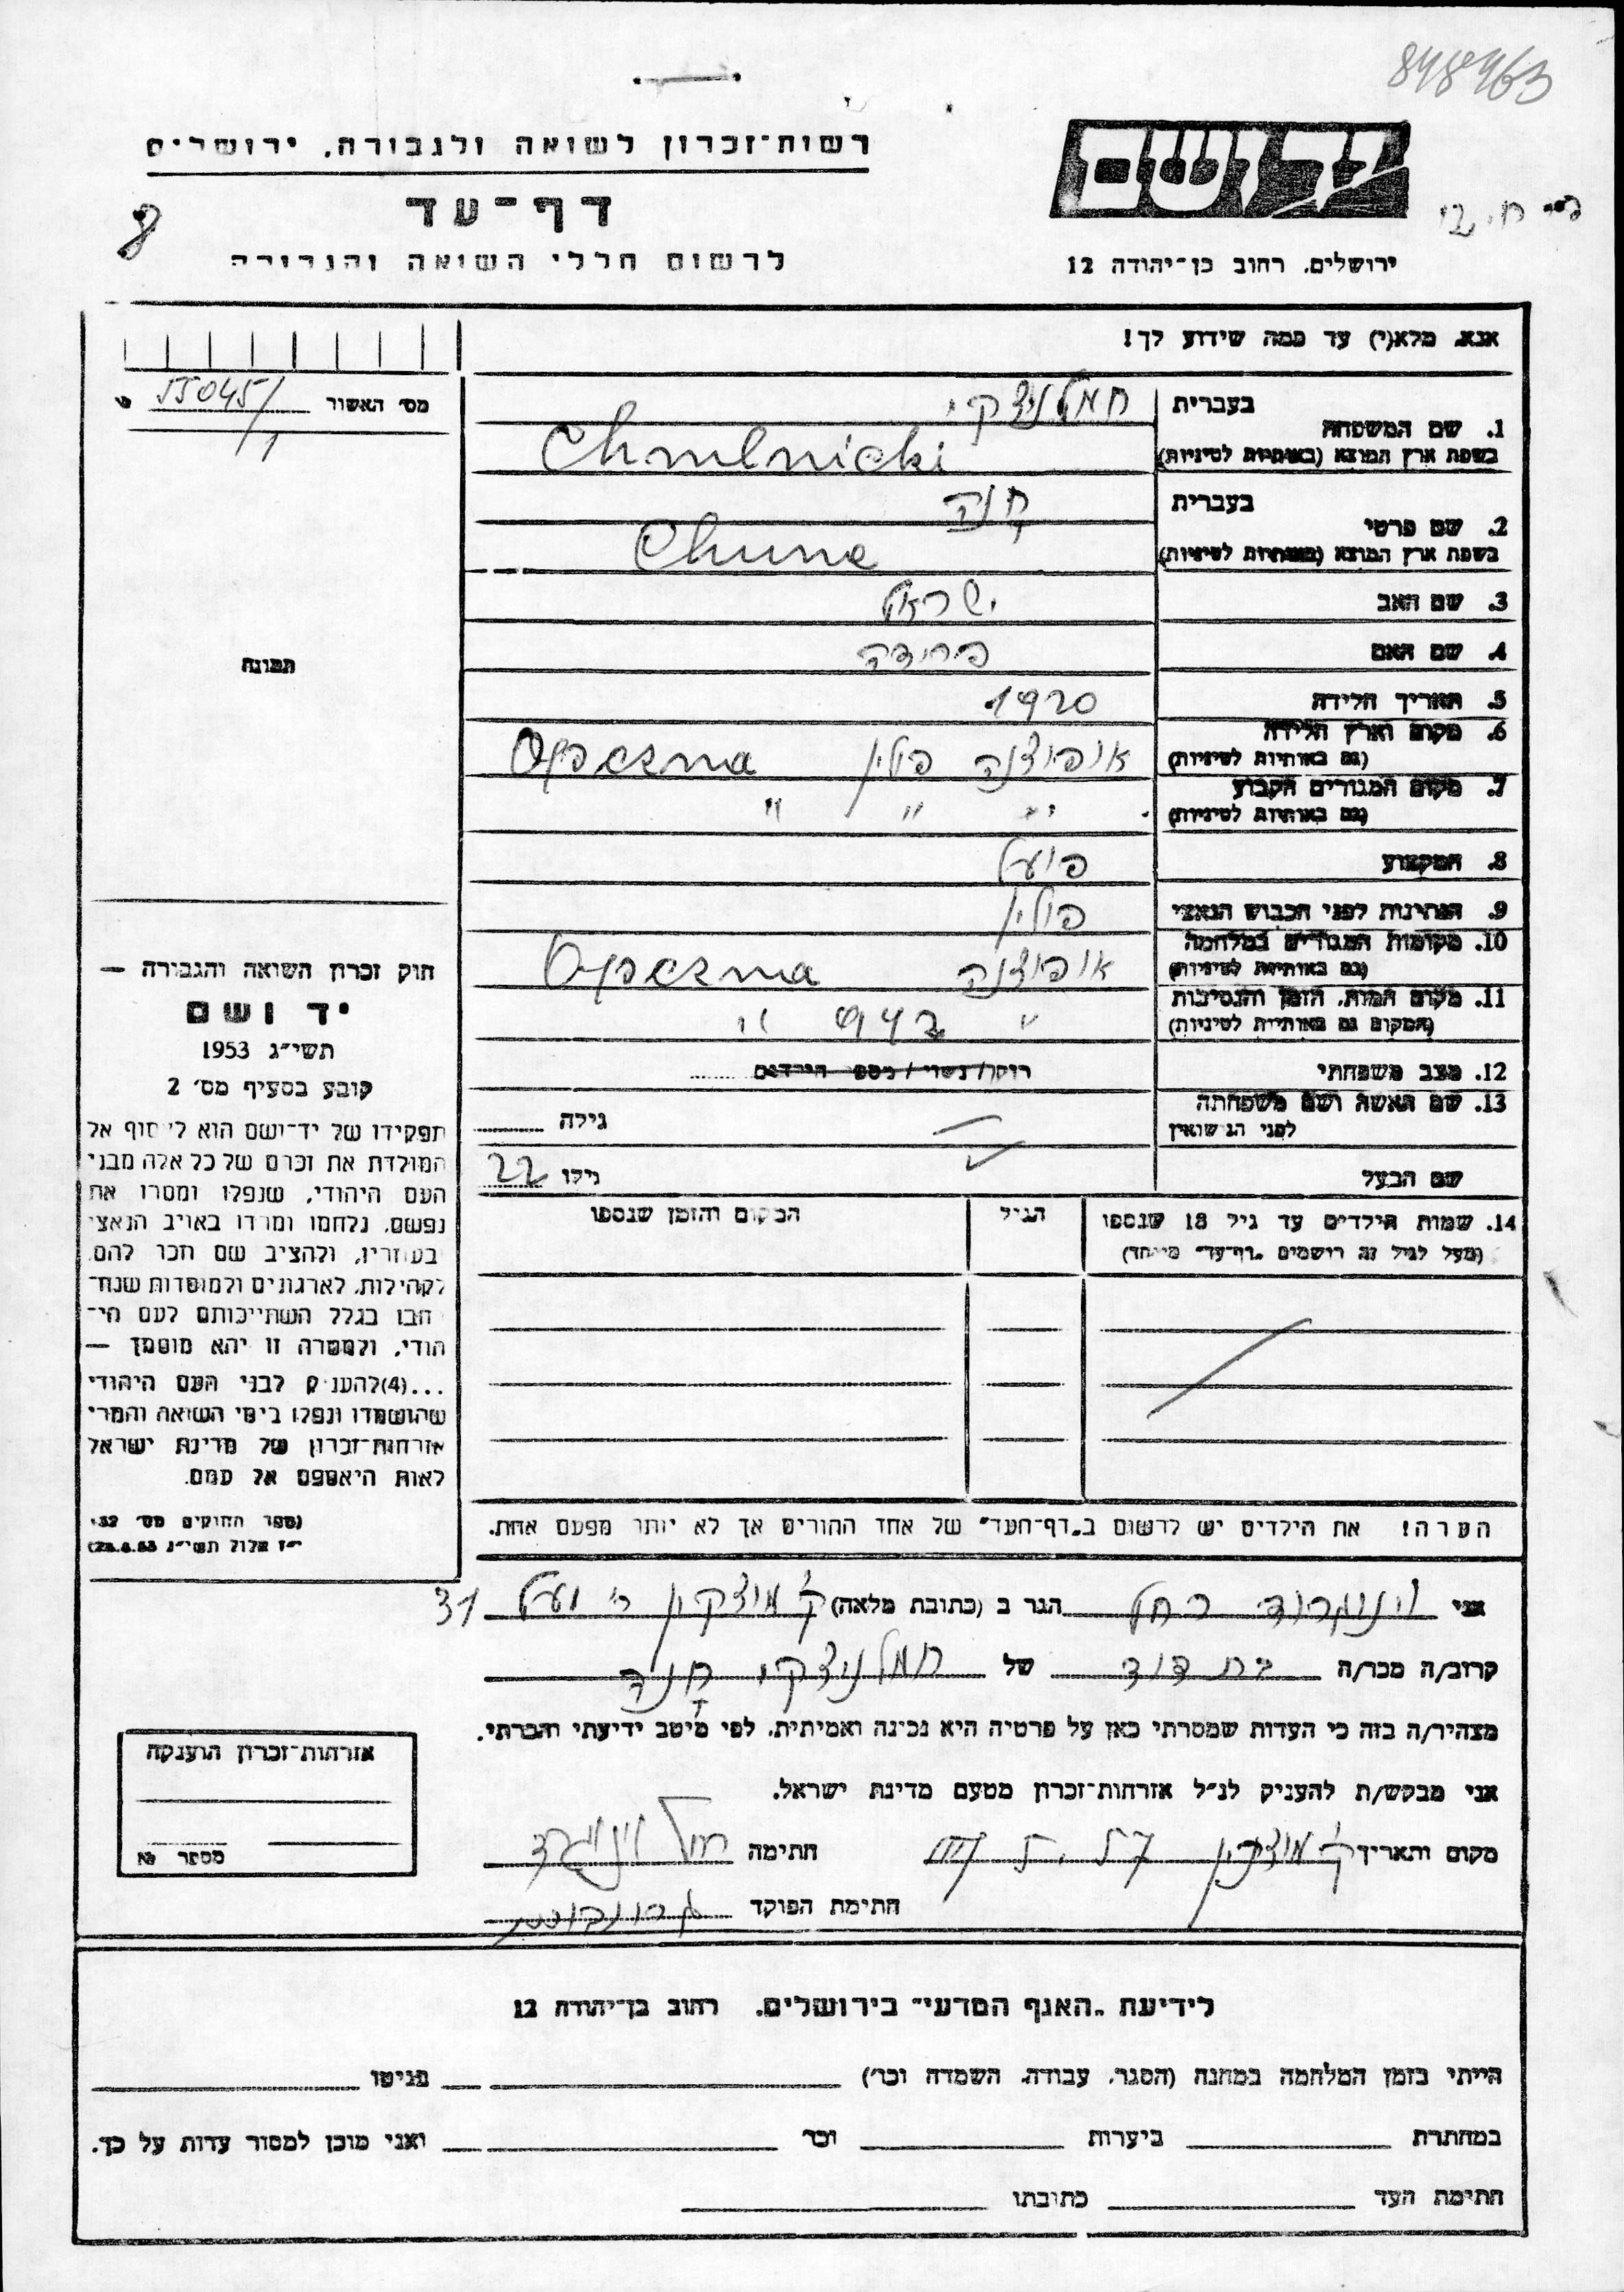 848463
רשות־זכרון לשואה ולגבורה, ירושלים
דף־עד
לרשום חללי השואה והגבורה
8
יד ושם
ירושלים, רחוב בן־יהודה 12
אנא, מלא(י) עד כמה שידוע לך!
מס׳ האשור 55045/1
1. שם המשפחה
בעברית חמלניצקי
בשפת ארץ המוצא (באותיות לטיניות) Chmlnicki
2. שם פרטי
בעברית חנה
בשפת ארץ המוצא (באותיות לטיניות) Chune
3. שם האב ישראל
4. שם האם פרידה
5. תאריך הלידה 1920
6. מקום וארץ הלידה (גם באותיות לטיניות) אופוצנה פולין Opoczna
7. מקום המגורים הקבוע (גם באותיות לטיניות) " " "
8. המקצוע פועל
9. הנתינות לפני הכבוש הנאצי פולין
10. מקומות המגורים במלחמה (גם באותיות לטיניות) אופוצנה Opoczna
11. מקום המות, הזמן והנסיבות (המקום גם באותיות לטיניות) " 942 "
12. מצב משפחתי רווק/נשוי/מספר הילדים
13. שם האשה ושם משפחתה לפני הנישואין גילה
שם הבעל גילו 22
14. שמות הילדים עד גיל 18 שנספו הגיל המקום והזמן שנספו
(מעל לגיל זה רושמים „דף־עד״ מיוחד)
הערה! את הילדים יש לרשום ב„דף־העד״ של אחד ההורים אך לא יותר מפעם אחת.
תמונה
חוק זכרון השואה והגבורה —
יד ושם
תשי״ג 1953
קובע בסעיף מס׳ 2
תפקידו של יד־ושם הוא לאסוף אל
המולדת את זכרם של כל אלה מבני
העם היהודי, שנפלו ומסרו את
נפשם, נלחמו ומרדו באויב הנאצי
בעוזריו, ולהציב שם וזכר להם,
לקהילות, לארגונים ולמוסדות שנח־
רבו בגלל השתייכותם לעם הי־
הודי, ולמטרה זו יהא מוסמך —
...(4) להעניק לבני העם היהודי
שהושמדו ונפלו בימי השואה והמרי
אזרחות־זכרון של מדינת ישראל
לאות היאספם אל עמם.
(ספר החוקים מס׳ 132,
י״ז אלול תשי״ג 28.8.53)
אני וינוגרוד רחל הגר ב (כתובת מלאה) ק׳ מוצקין ר׳ יעל 31
קרוב/ה מכר/ה בת דוד של חמלניצקי חנה
מצהיר/ה בזה כי העדות שמסרתי כאן על פרטיה היא נכונה ואמיתית, לפי מיטב ידיעתי והכרתי.
אני מבקש/ת להעניק לנ״ל אזרחות־זכרון מטעם מדינת ישראל.
מקום ותאריך ק׳ מוצקין חתימה
חתימת הפוקד
אזרחות־זכרון הוענקה
מספר
לידיעת „האגף המדעי״ בירושלים, רחוב בן־יהודה 12
הייתי בזמן המלחמה במחנה (הסגר, עבודה, השמדה וכו׳) בגיטו
במחתרת ביערות וכו׳ ואני מוכן למסור עדות על כך.
חתימת העד כתובתו